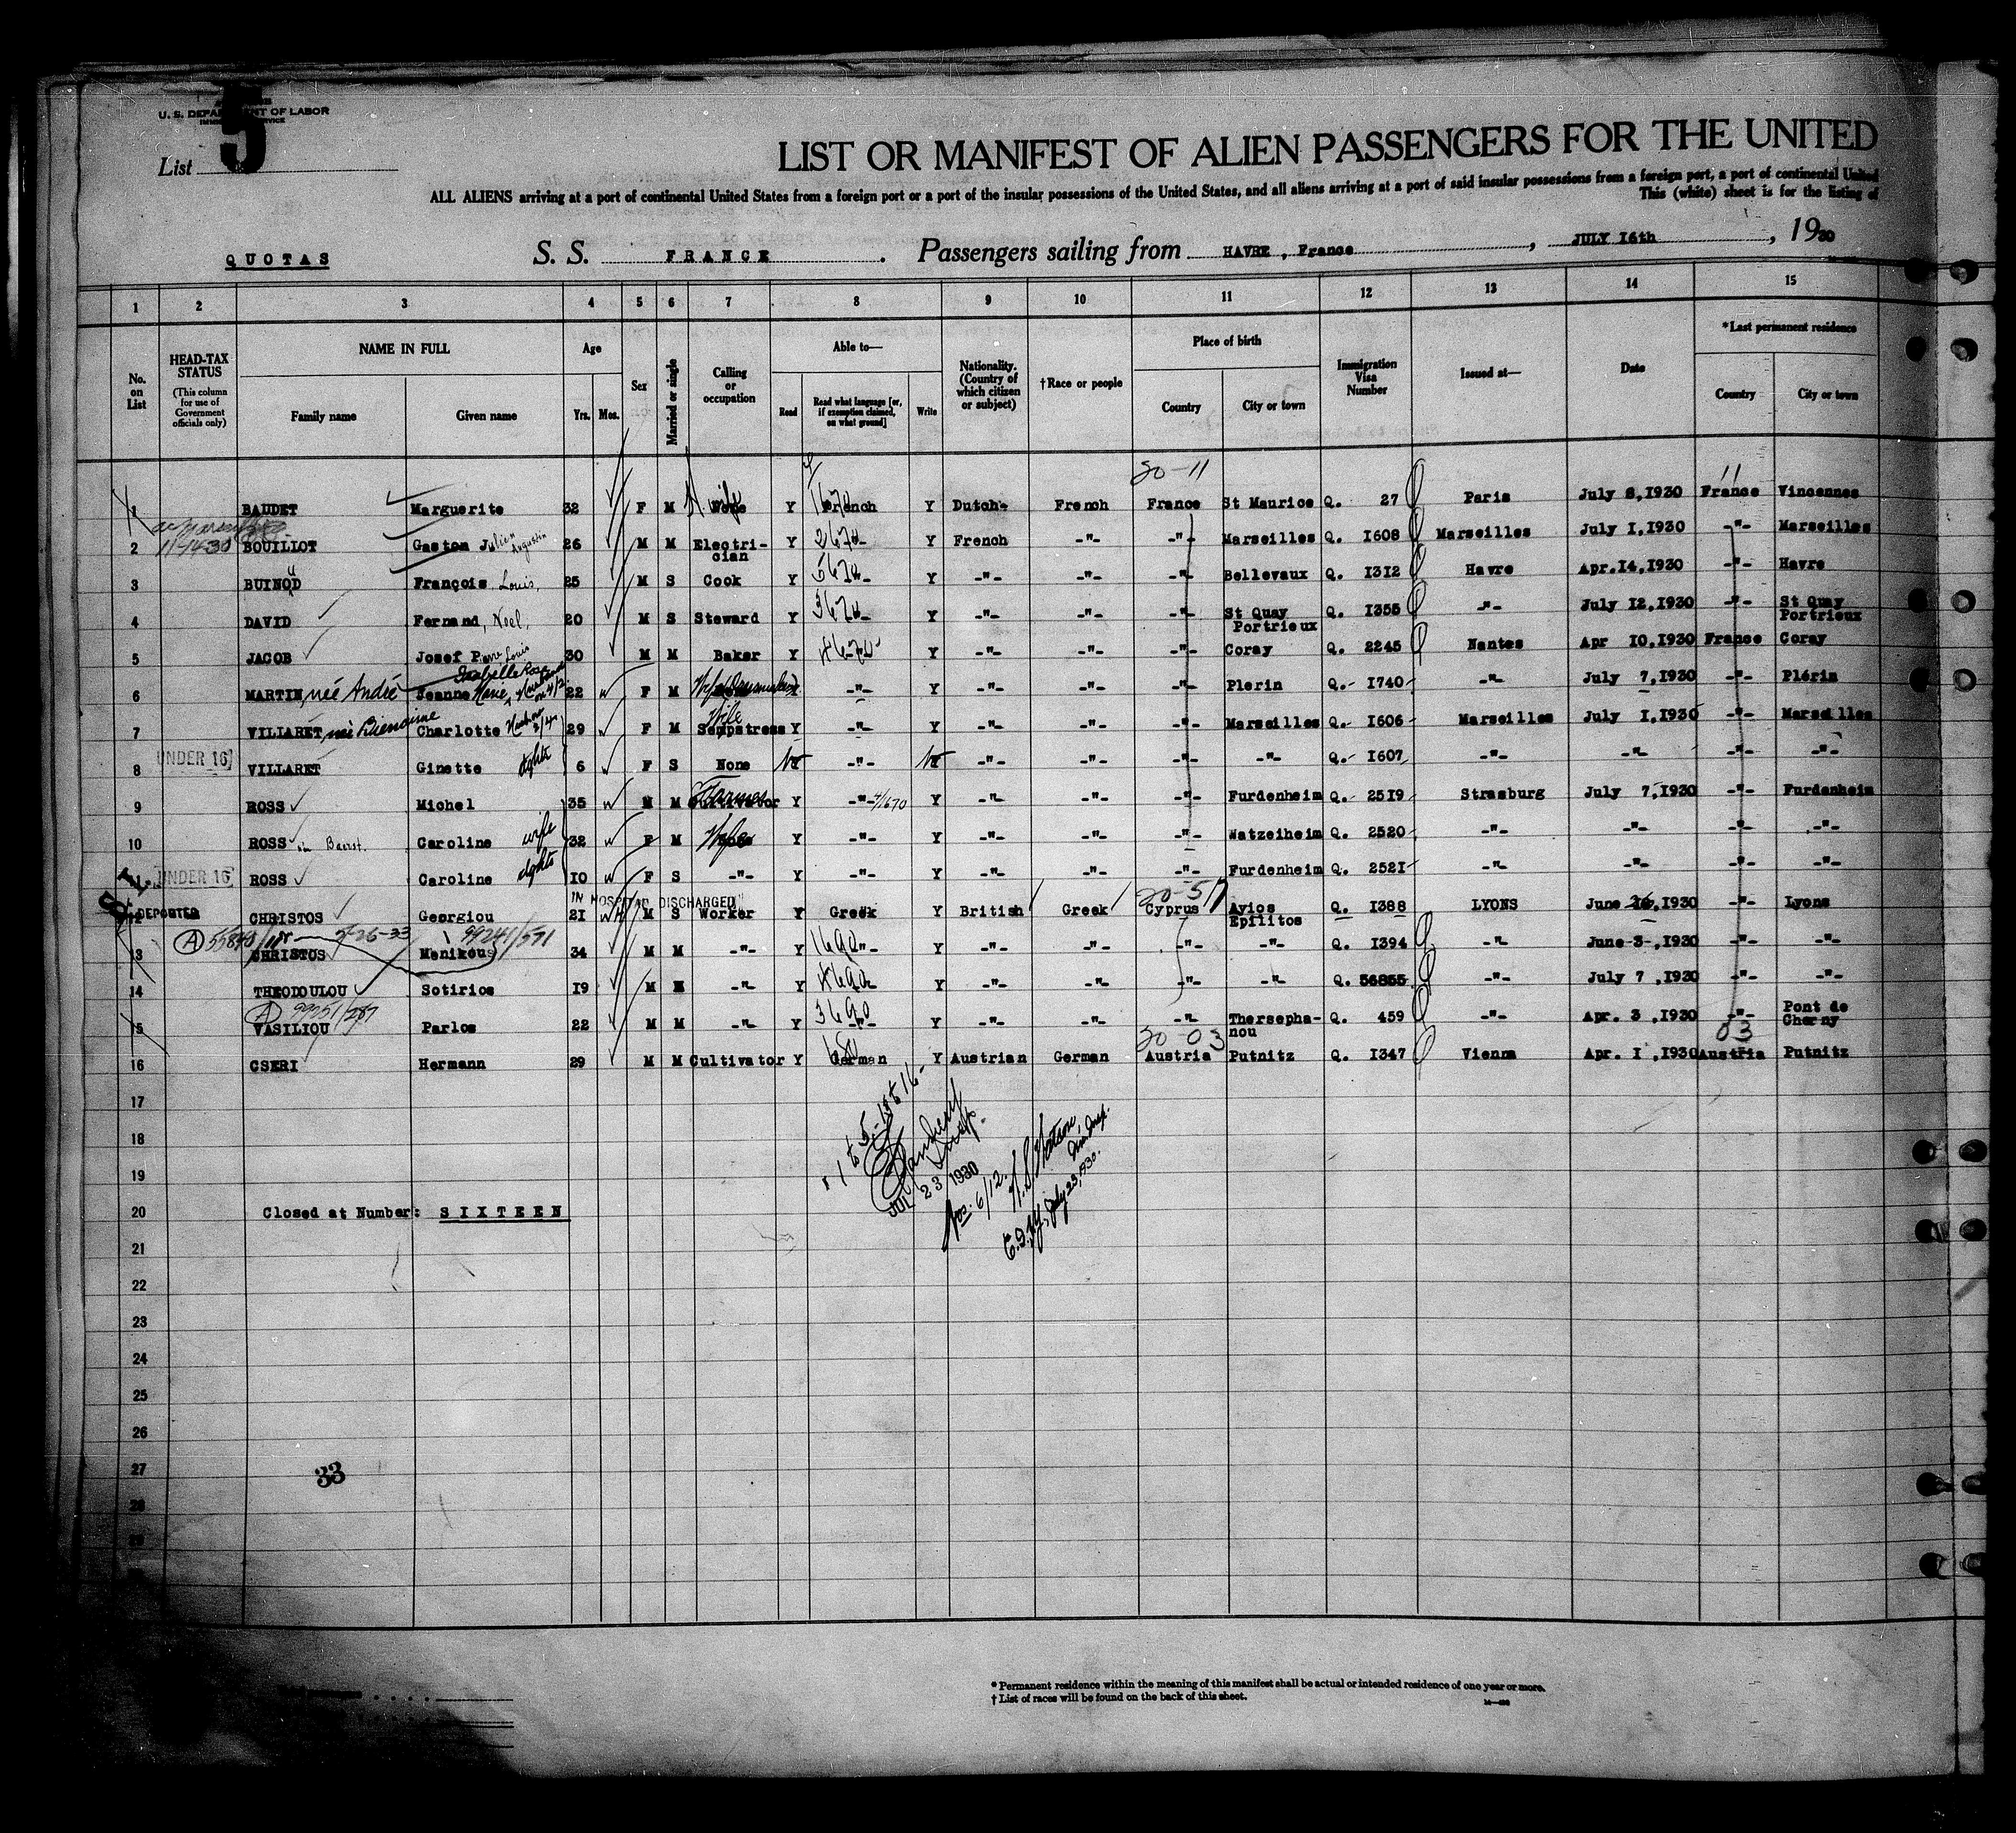 U. S. DEPARTMENT OF LABOR
IMMIGRATION SERVICE
5
List
LIST OR MANIFEST OF ALIEN PASSENGERS FOR THE UNITED
ALL ALIENS arriving at a port of continental United States from a foreign port or a port of the insular possessions of the United States, and all aliens arriving at a port of said insular possessions from a foreign port, a port of continental United
This (white) sheet is for the listing of
QUOTAS S. S. FRANCE . Passengers sailing from HAVRE , France , JULY 16th , 1930
1 2 3 4 5 6 7 8 9 10 11 12 13 14 15
No. on List
HEAD-TAX STATUS (This column for use of Government officials only)
NAME IN FULL
Family name Given name
Age Yrs. Mos.
Sex
Married or single
Calling or occupation
Able to—
Read Read what language [or, if exemption claimed, on what ground] Write
Nationality. (Country of which citizen or subject)
†Race or people
Place of birth
Country City or town
Immigration Visa Number
Issued at—
Date
*Last permanent residence
Country City or town
20-11 11
1 BAUDET Marguerite 32 F M wife Y French Y Dutch French France St Maurice Q. 27 Paris July 8,1930 France Vincennes
11-14-30
2 BOUILLOT Gaston Julien Augustin 26 M M Electri-cian Y 2670 -"- Y French -"- -"- Marseilles Q. 1608 Marseilles July 1,1930 -"- Marseilles
3 BUINOD François Louis, 25 M S Cook Y 5670 -"- Y -"- -"- -"- Bellevaux Q. 1312 Havre Apr.14,1930 -"- Havre
4 DAVID Fernand, Noel, 20 M S Steward Y 3670 -"- Y -"- -"- -"- St Quay Portrieux Q. 1355 -"- July 12,1930 -"- St Quay Portrieux
5 JACOB Josef Pierre Louis 30 M M Baker Y 4670 -"- Y -"- -"- -"- Coray Q. 2245 Nantes Apr 10,1930 France Coray
6 MARTIN, née André Jeanne Isabelle Rose 22 F M -"- -"- -"- -"- Plerin Q.- 1740 -"- July 7,1930 -"- Plérin
7 VILLARET née Bienaime Charlotte 29 F M Wife Sempstress Y -"- Y -"- -"- -"- Marseilles Q.- 1606 Marseilles July 1,1930 -"- Marseilles
8 UNDER 16 VILLARET Ginette dghtr 6 F S None -"- -"- -"- -"- -"- Q.- 1607 -"- -"- -"- -"-
9 ROSS Michel 35 M M Farmer Cultivator Y -"- 4/670 Y -"- -"- -"- Furdenheim Q.- 2519 Strasburg July 7,1930 -"- Furdenheim
10 ROSS Caroline wife 32 F M Wife Y -"- Y -"- -"- -"- Watzeiheim Q. 2520 -"- -"- -"- -"-
11 UNDER 16 ROSS Caroline dghtr 10 F S -"- Y -"- Y -"- -"- -"- Furdenheim Q. 2521 -"- -"- -"- -"-
IN HOSPITAL DISCHARGED 20-51
12 DEPORTED CHRISTOS Georgiou 21 M S Worker Y Greek Y British Greek Cyprus Ayios Epfiitos Q. 1388 LYONS June 26,1930 -"- Lyons
(A) 55840/118 5-26-33 99241/571
13 CHRISTOS Menikous 34 M M -"- Y 1690 -"- Y -"- -"- -"- -"- Q. 1394 -"- June 3 ,1930 -"- -"-
14 THEODOULOU Sotirios 19 M -"- Y 4690 -"- Y -"- -"- -"- -"- Q. 56855 -"- July 7 ,1930 -"- -"-
(A) 99251/287
15 VASILIOU Parlos 22 M M -"- Y 3690 -"- Y -"- -"- -"- Thersepha-nou Q. 459 -"- Apr. 3 ,1930 -"- Pont de Cherny
20-03 03
16 CSERI Hermann 29 M M Cultivator Y German Y Austrian German Austria Putnitz Q. 1347 Vienna Apr. 1 ,1930 Austria Putnitz
17
18
19
1 to 5-13 to 16-
JUL 23 1930
Nos. 6/12. Imm Insp.
E.I.N.Y., July 23, 1930.
20 Closed at Number: SIXTEEN
21
22
23
24
25
26
27
33
28
29
* Permanent residence within the meaning of this manifest shall be actual or intended residence of one year or more.
† List of races will be found on the back of this sheet.